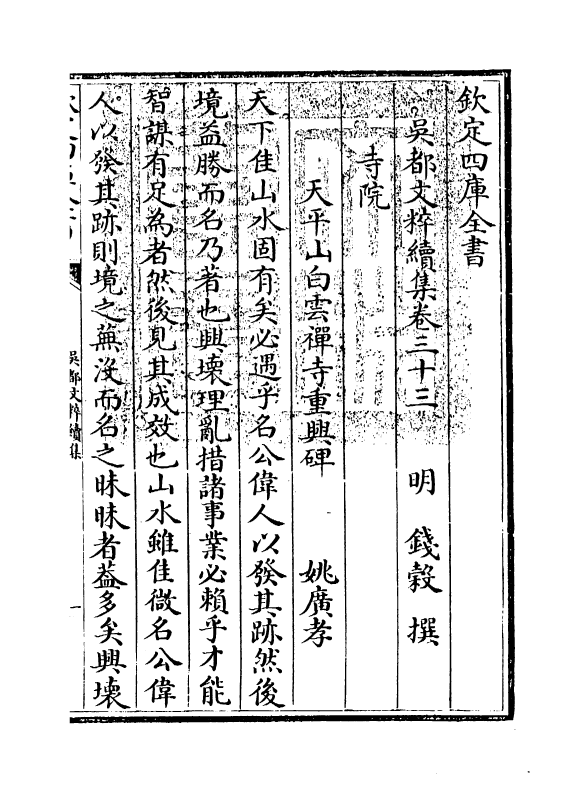 欽定四庫全書
吳都文粹續集卷三十三　明　錢穀　撰
寺院
天平山白雲禪寺重興碑　姚廣孝
天下佳山水固有矣必遇乎名公偉人以發其跡然後
境益勝而名乃著也興壊理亂措諸事業必賴乎才能
智謀有足為者然後見其成效也山水雖佳微名公偉
人以發其跡則境之蕪沒而名之昧昧者葢多矣興壊
吳都文粹續集
一